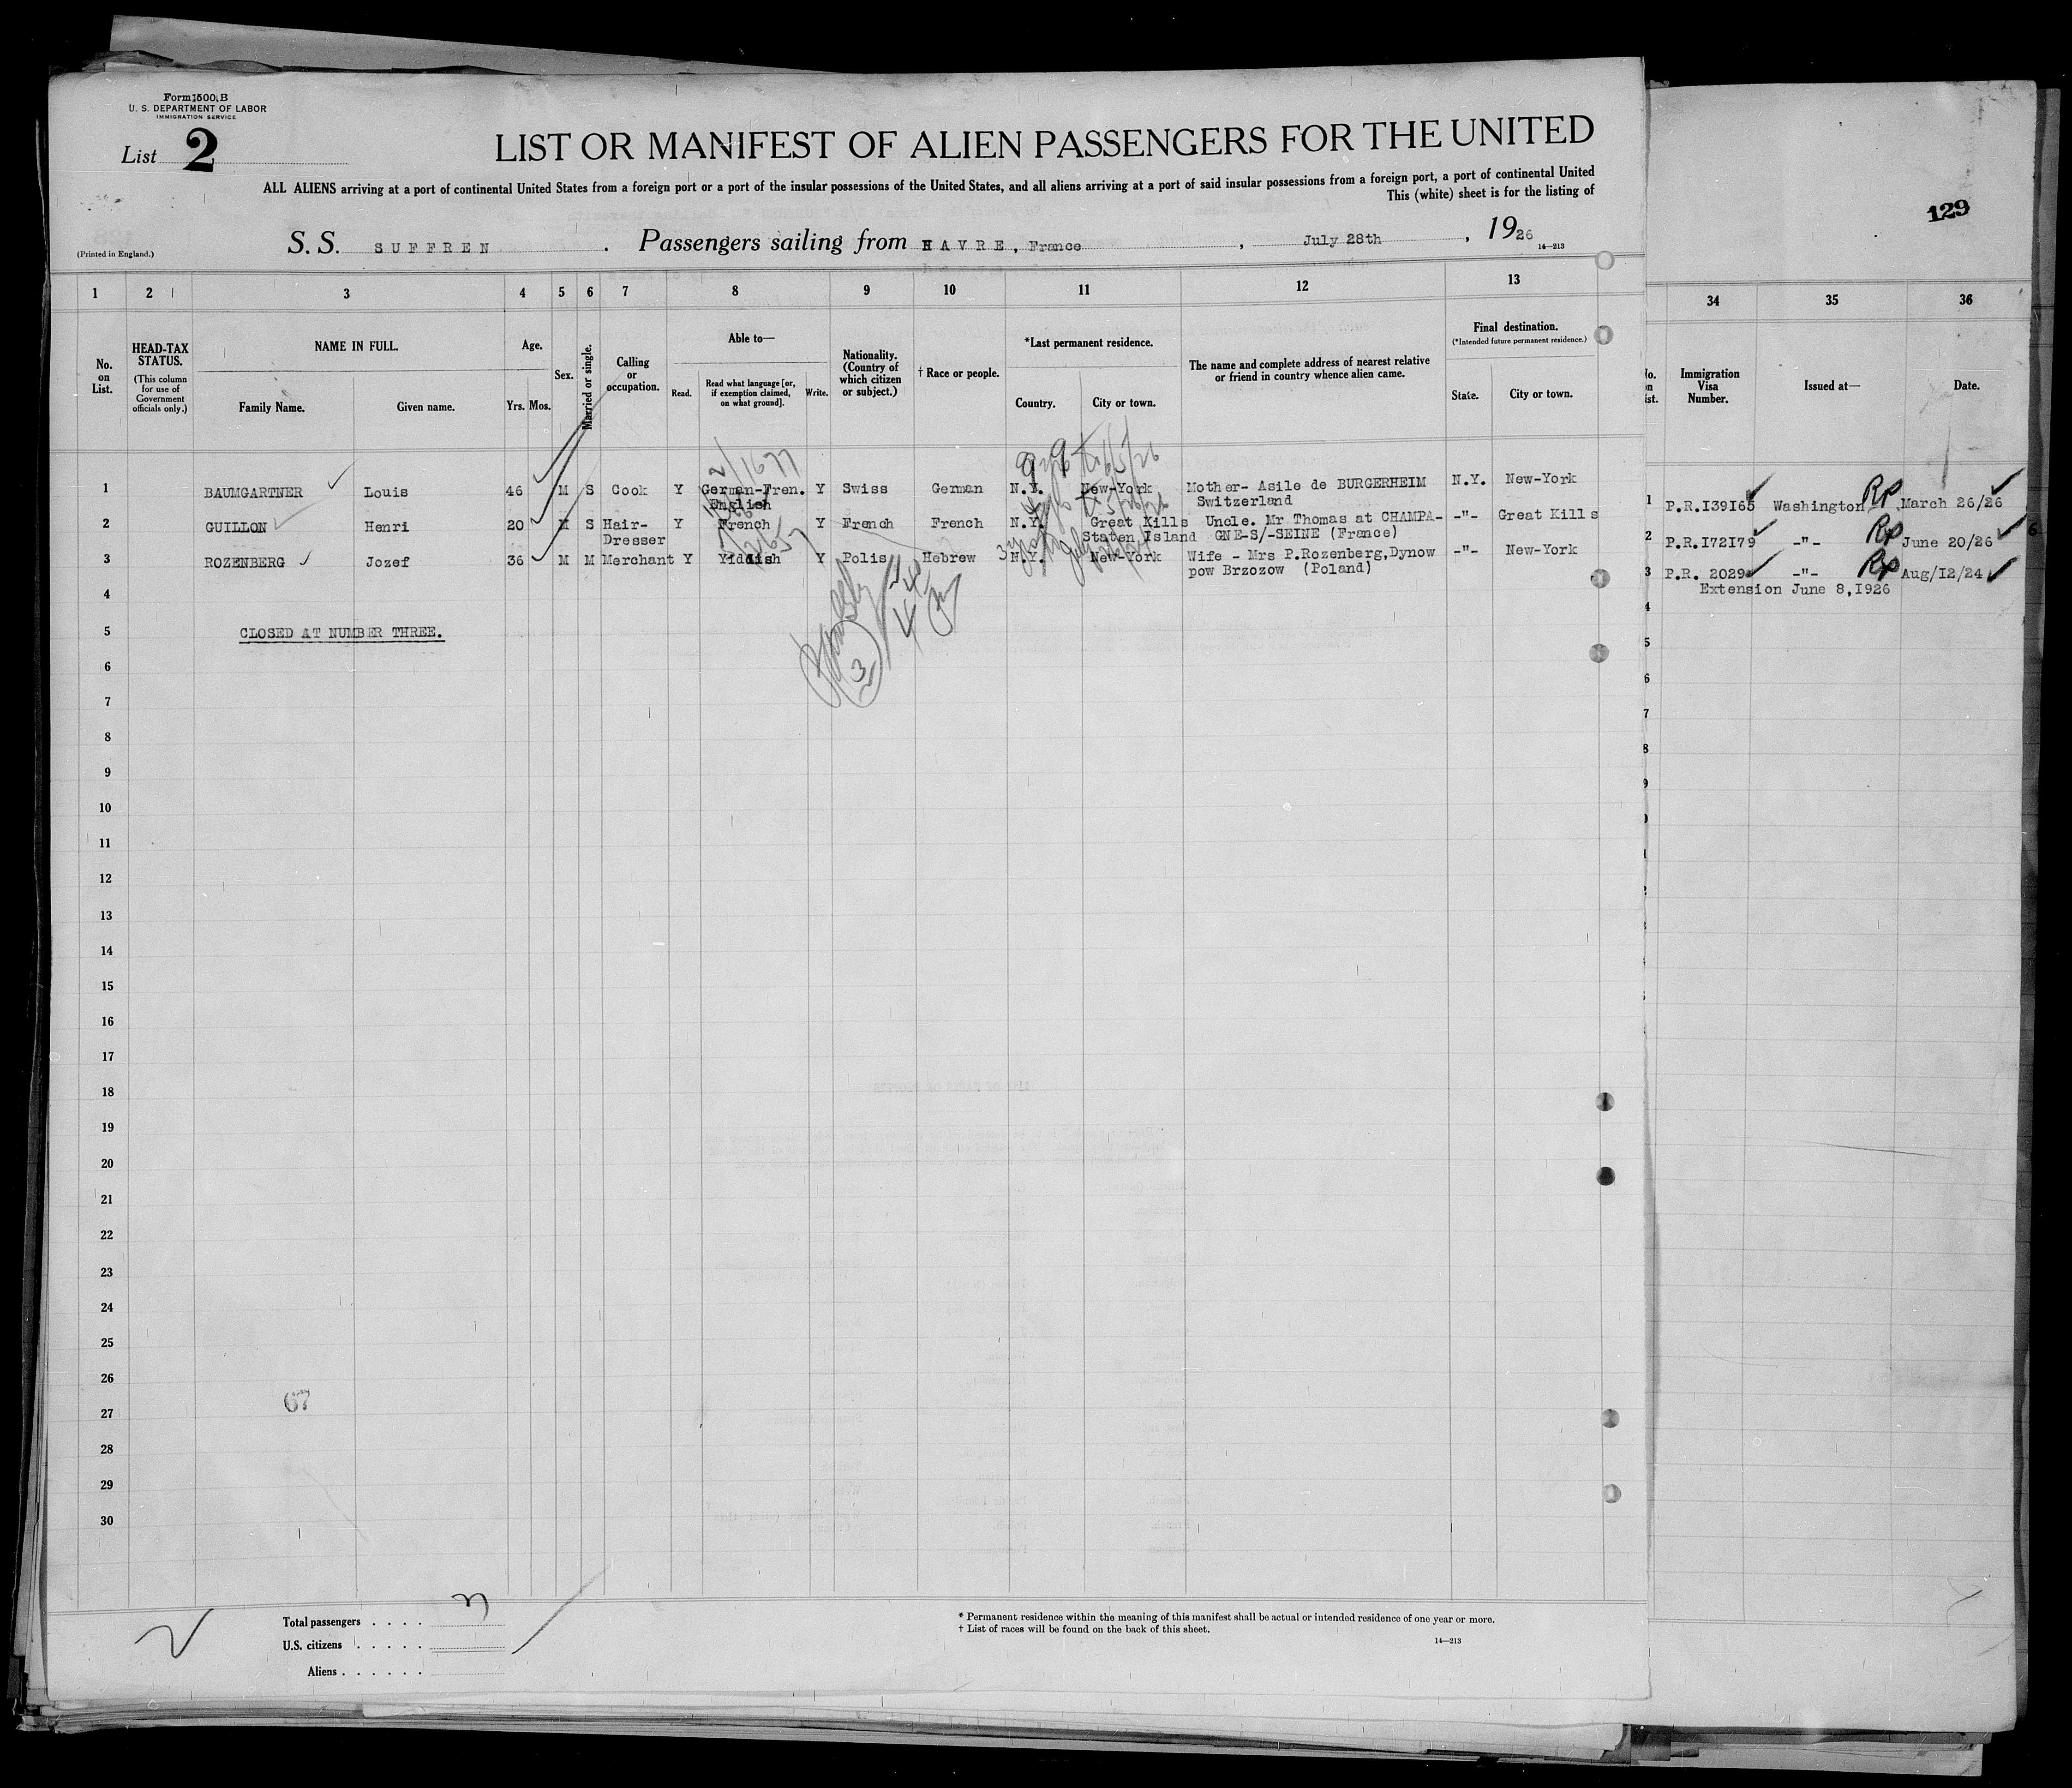 Form 1500 B
U. S. DEPARTMENT OF LABOR
IMMIGRATION SERVICE
List 2
LIST OR MANIFEST OF ALIEN PASSENGERS FOR THE UNITED
ALL ALIENS arriving at a port of continental United States from a foreign port or a port of the insular possessions of the United States, and all aliens arriving at a port of said insular possessions from a foreign port, a port of continental United
This (white) sheet is for the listing of
129
(Printed in England.)
S. S. SUFFREN . Passengers sailing from HAVRE, France , July 28th , 1926
14—213
1 2 3 4 5 6 7 8 9 10 11 12 13 34 35 36
No. on List.
HEAD-TAX STATUS.
(This column for use of Government officials only.)
NAME IN FULL.
Family Name. Given name.
Age.
Yrs. Mos.
Sex.
Married or single.
Calling or occupation.
Able to—
Read. Read what language [or, if exemption claimed, on what ground]. Write.
Nationality. (Country of which citizen or subject.)
† Race or people.
*Last permanent residence.
Country. City or town.
The name and complete address of nearest relative or friend in country whence alien came.
Final destination.
(*Intended future permanent residence.)
State. City or town.
Immigration Visa Number.
Issued at—
Date.
2/1677
1 BAUMGARTNER Louis 46 M S Cook Y German-Fren. Y Swiss German N.Y. New-York Mother- Asile de BURGERHEIM N.Y. New-York 1 P.R.I39I65 Washington RP March 26/26
English Switzerland
2 GUILLON Henri 20 M S Hair- Y French Y French French N.Y. Great Kills Uncle. Mr Thomas at CHAMPA- -"- Great Kills 2 P.R.I72I79 -"- RP June 20/26
Dresser Staten Island GNE-S/-SEINE (France)
3 ROZENBERG Jozef 36 M M Merchant Y Yiddish Y Polis Hebrew N.Y. New-York Wife - Mrs P.Rozenberg,Dynow -"- New-York 3 P.R. 2029 -"- RP Aug/I2/24
pow Brzozow (Poland) Extension June 8,I926
4
5 CLOSED AT NUMBER THREE.
3
6
7
8
9
10
11
12
13
14
15
16
17
18
19
20
21
22
23
24
25
26
67
27
28
29
30
Total passengers . . . .
U.S. citizens . . . . .
Aliens . . . . . .
* Permanent residence within the meaning of this manifest shall be actual or intended residence of one year or more.
† List of races will be found on the back of this sheet.
14—213